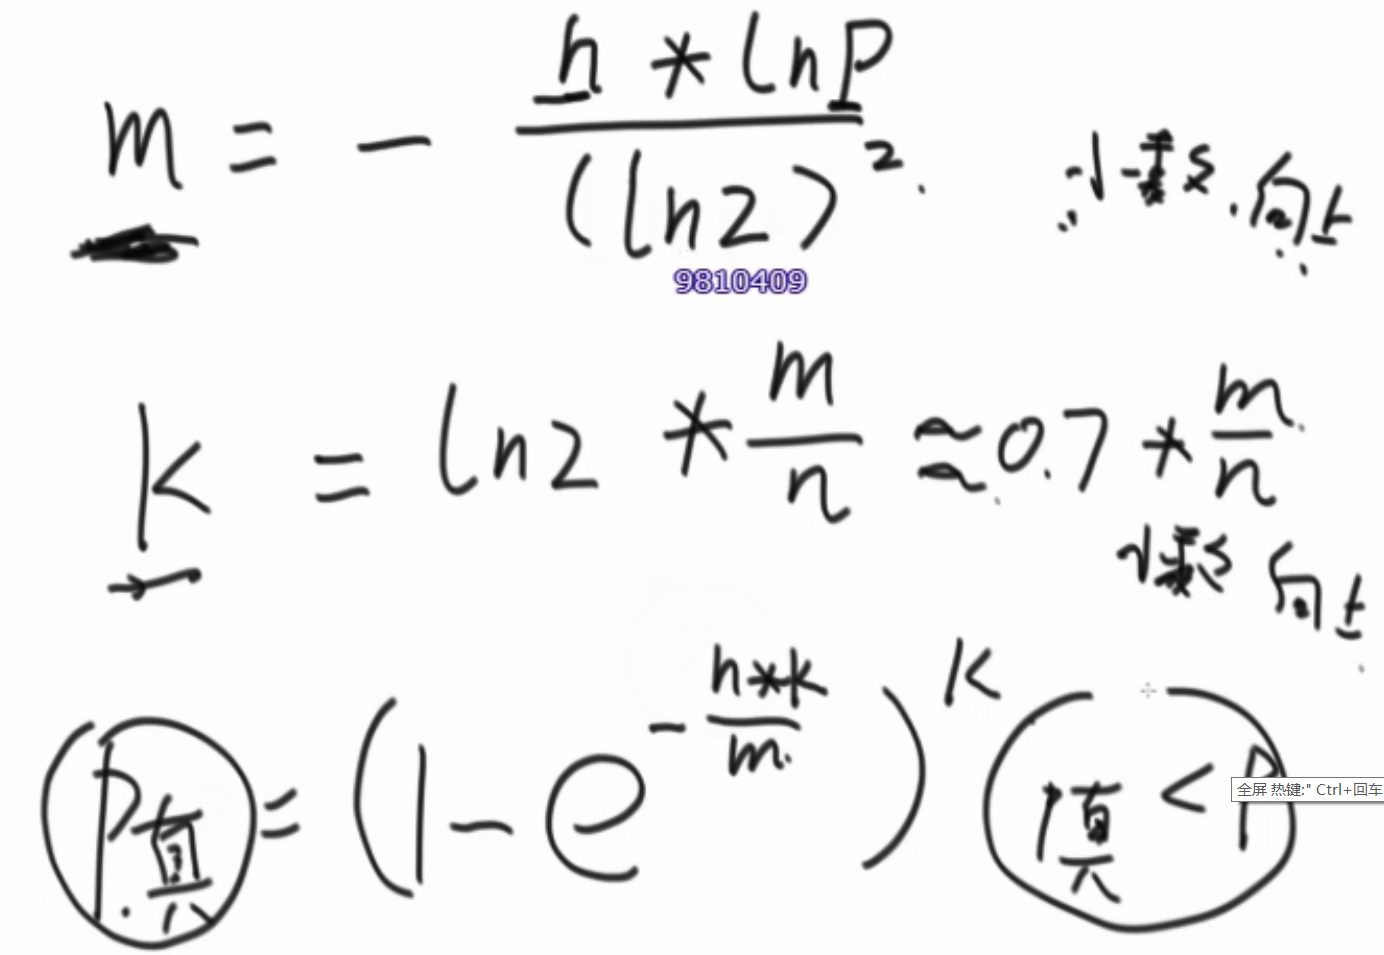 m = - n * ln p / (ln2)² 小数 向上
9810409
k = ln2 * m/n ≈ 0.7 * m/n
小数 向上
P真 = (1 - e^(- n*k/m))^k P真 < P
全屏 热键:" Ctrl+回车